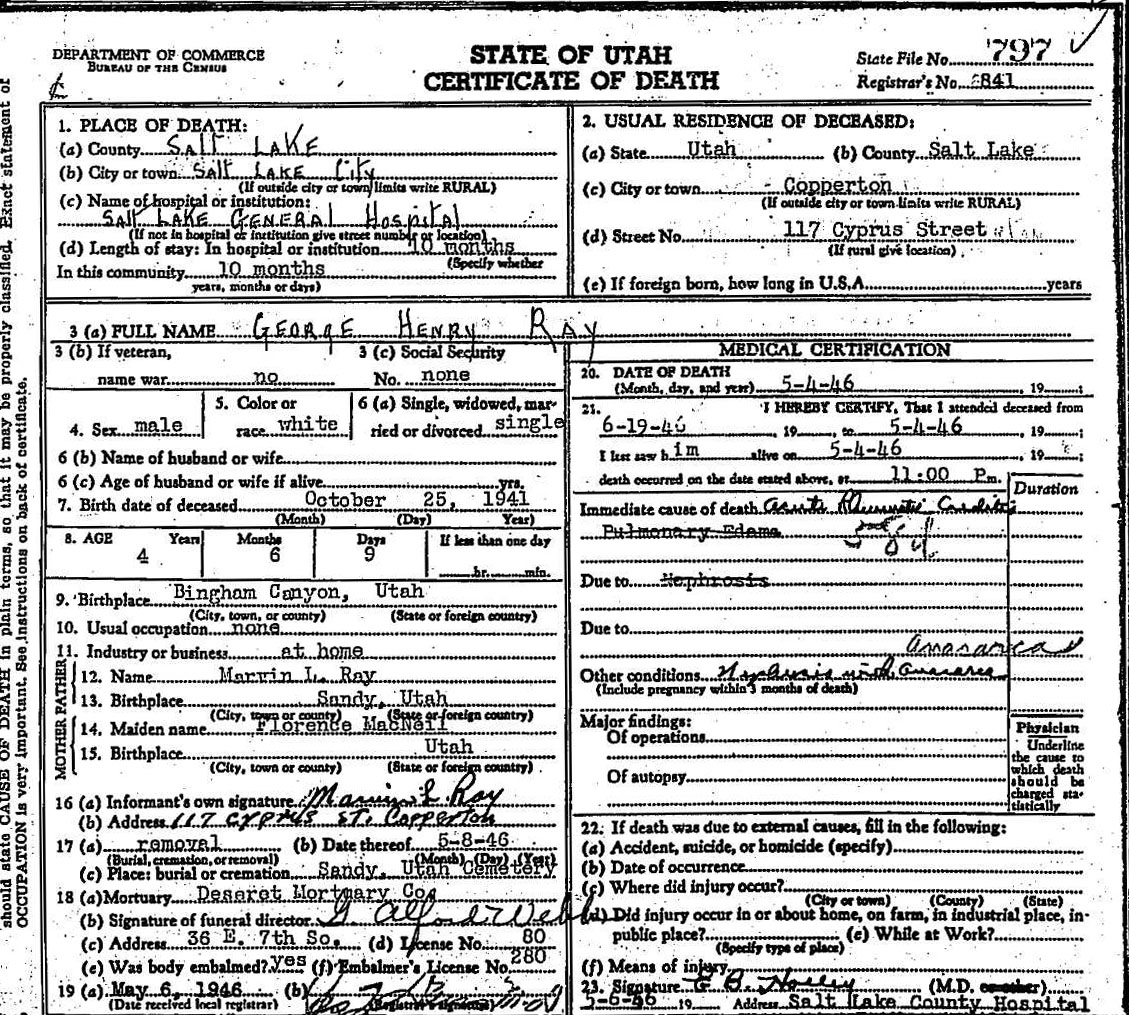 DEPARTMENT OF COMMERCE
BUREAU OF THE CENSUS
STATE OF UTAH
CERTIFICATE OF DEATH
State File No. 797
Registrar's No. 841
should state CAUSE OF DEATH in plain terms, so that it may be properly classified. Exact statement of
OCCUPATION is very important. See instructions on back of certificate.
1. PLACE OF DEATH:
(a) County SALT LAKE
(b) City or town SALT LAKE CITY
(If outside city or town limits write RURAL)
(c) Name of hospital or institution:
SALT LAKE GENERAL HOSPITAL
(If not in hospital or institution give street number or location)
(d) Length of stay: In hospital or institution 10 months
(Specify whether
In this community 10 months
years, months or days)
2. USUAL RESIDENCE OF DECEASED:
(a) State Utah (b) County Salt Lake
(c) City or town Copperton
(If outside city or town limits write RURAL)
(d) Street No. 117 Cyprus Street
(If rural give location)
(e) If foreign born, how long in U.S.A. years
3 (a) FULL NAME GEORGE HENRY RAY
3 (b) If veteran, 3 (c) Social Security
name war no No. none
4. Sex male 5. Color or race white 6 (a) Single, widowed, married or divorced single
6 (b) Name of husband or wife
6 (c) Age of husband or wife if alive yrs.
7. Birth date of deceased October 25, 1941
(Month) (Day) Year)
8. AGE Years Months Days If less than one day
4 6 9 hr. min.
9. Birthplace Bingham Canyon, Utah
(City, town, or county) (State or foreign country)
10. Usual occupation none
11. Industry or business at home
MOTHER FATHER
12. Name Marvin L. Ray
13. Birthplace Sandy, Utah
(City, town or county) (State or foreign country)
14. Maiden name Florence MacNeil
15. Birthplace Utah
(City, town or county) (State or foreign country)
16 (a) Informant's own signature Marvin L Ray
(b) Address 117 CYPRUS ST. COPPERTON
17 (a) removal (b) Date thereof 5-8-46
(Burial, cremation, or removal) (Month) (Day) (Year)
(c) Place: burial or cremation Sandy, Utah Cemetery
18 (a) Mortuary Deseret Mortuary Co.
(b) Signature of funeral director G. Alford Webb
(c) Address 36 E. 7th So. (d) License No. 80
(e) Was body embalmed? yes (f) Embalmer's License No. 280
19 (a) May 6, 1946 (b)
(Date received local registrar) (Registrar's signature)
MEDICAL CERTIFICATION
20. DATE OF DEATH
(Month, day, and year) 5-4-46, 19 ;
21. I HEREBY CERTIFY, That I attended deceased from
6-19-46, 19 , to 5-4-46, 19 ;
I last saw him alive on 5-4-46, 19
death occurred on the date stated above, at 11:00 P m.
Duration
Immediate cause of death Acute Rheumatic Carditis
Pulmonary Edema
Due to Nephrosis
Due to
Anasarca
Other conditions Nephrosis with Anasarca
(Include pregnancy within 3 months of death)
Major findings:
Of operations
Of autopsy
Physician
Underline
the cause to
which death
should be
charged sta-
tistically
22. If death was due to external causes, fill in the following:
(a) Accident, suicide, or homicide (specify)
(b) Date of occurrence
(c) Where did injury occur?
(City or town) (County) (State)
(d) Did injury occur in or about home, on farm, in industrial place, in-
public place? (e) While at Work?
(Specify type of place)
(f) Means of injury
23. Signature (M.D. or other)
5-6-46 19 Address Salt Lake County Hospital